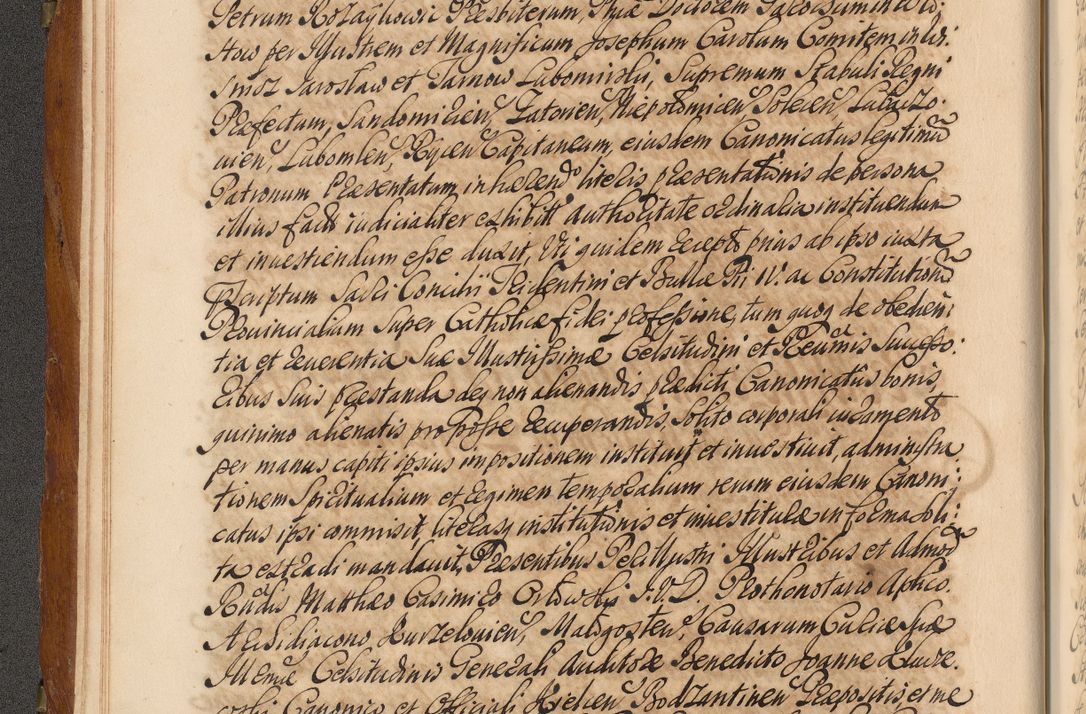 Petrum Rozayhowic Presbiterum, Phiæ Doctorem
How per Illustrem et Magnificum Josephum Carolum Comitem in Wi:
snicz Jarosław et Tarnow Lubomirski, Supremum Stabuli Regni
Præfectum, Sandomirien, Zatorien, Niepołomicen, Solecen,
uien, Lubomlen, Rÿcien Capitaneum, eiusdem Canonicatus legitimũ
Patronum Præsentatum inhærendo literis præsentationis de persona
illius facto iudicialiter exhibitis authoritate ordinaria instituendum
et inuestiendum esse duxit, Uti quidem recepto prius ab ipso iuxta
præscriptum Sacri Concilii Tridentini et Bullæ Pii IV. ac Constitutionũ
Prouincialium Super Catholicæ fidei professione, tum quoq de obedien:
tia et reuerentia Suæ Illustrissimæ Celsitudini et Reũmis Succesfo:
ribus Suis præstanda deq non alienandis prædicti Canonicatus bonis,
quinimo alienatis pro posse recuperandis, Solito corporali iuramento
per manus capiti ipsius impositionem instituit et inuestiuit, administra
tionem Spiritualium et regimen temporalium rerum eiusdem Canoni:
catus ipsi commisit, literasq institutionis et inuestituræ in forma Soli:
ta extradi mandauit, Præsentibus Perillustri Illustribus et Admod
Rũdis Matthæo Casimiro Orłowski I.V.D. Prothonotario Aplico.
Archidiacono Kurzelouien, Małogosten, Causarum Curiæ Suæ
Illmæ Celsitudinis Generali Auditore Benedicto Joanne
Canonico et Officiali Kielcen Bodzantinen Præpositis et me